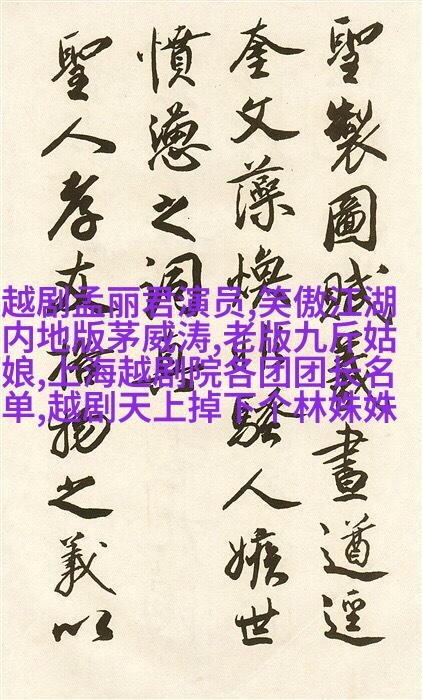 越剧孟丽君演员,笑傲江湖
内地版茅威涛,老版九斤姑
娘,上海越剧院各团团长名
单,越剧天上掉下个林姝姝
聖製圖賤畫遒逕
奎文藻煥騷人嫉世
憤懣之詞
聖人孝友格物之義以